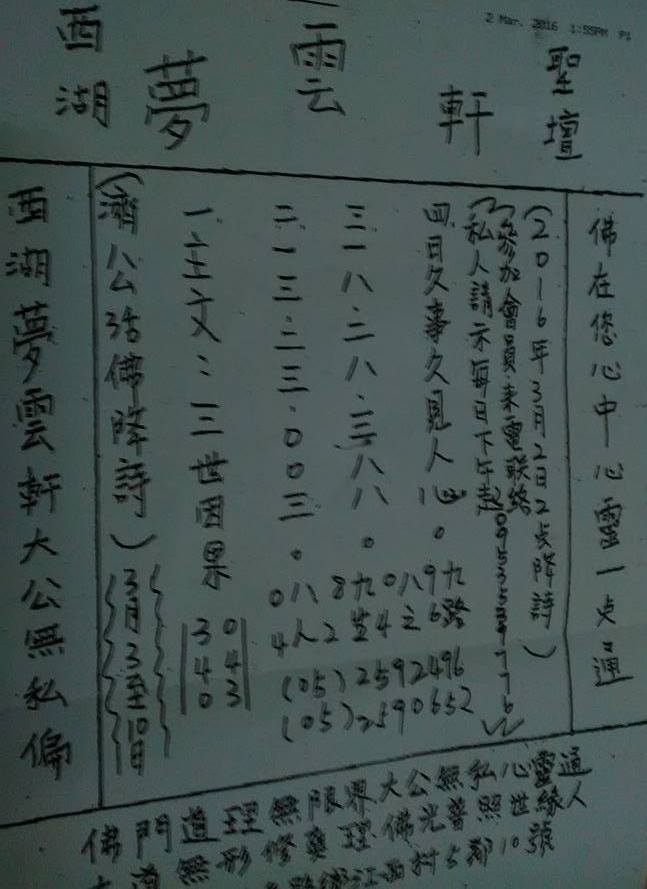 2 Mar. 2016 1:55PM P1
西湖夢雲軒聖壇
西湖夢雲軒大公無私偏
(濟公活佛降詩)
3月3至10日
一主文:三世因果
30
44
03
二一三.二三.00三。
三一八.二八.三八八。
四日久事久見人心。
0八8九0八9九
4人2 4之6路
(05)2592496
(05)2590652
(私人請示每日下午起
(參加會員.來電聯絡0955359776
(2016年3月2日2点降詩)
佛在您心中心靈一点通
佛門道理無限界大公無私心靈通
無形修真理佛光普照世緣人
江西村5鄰10號